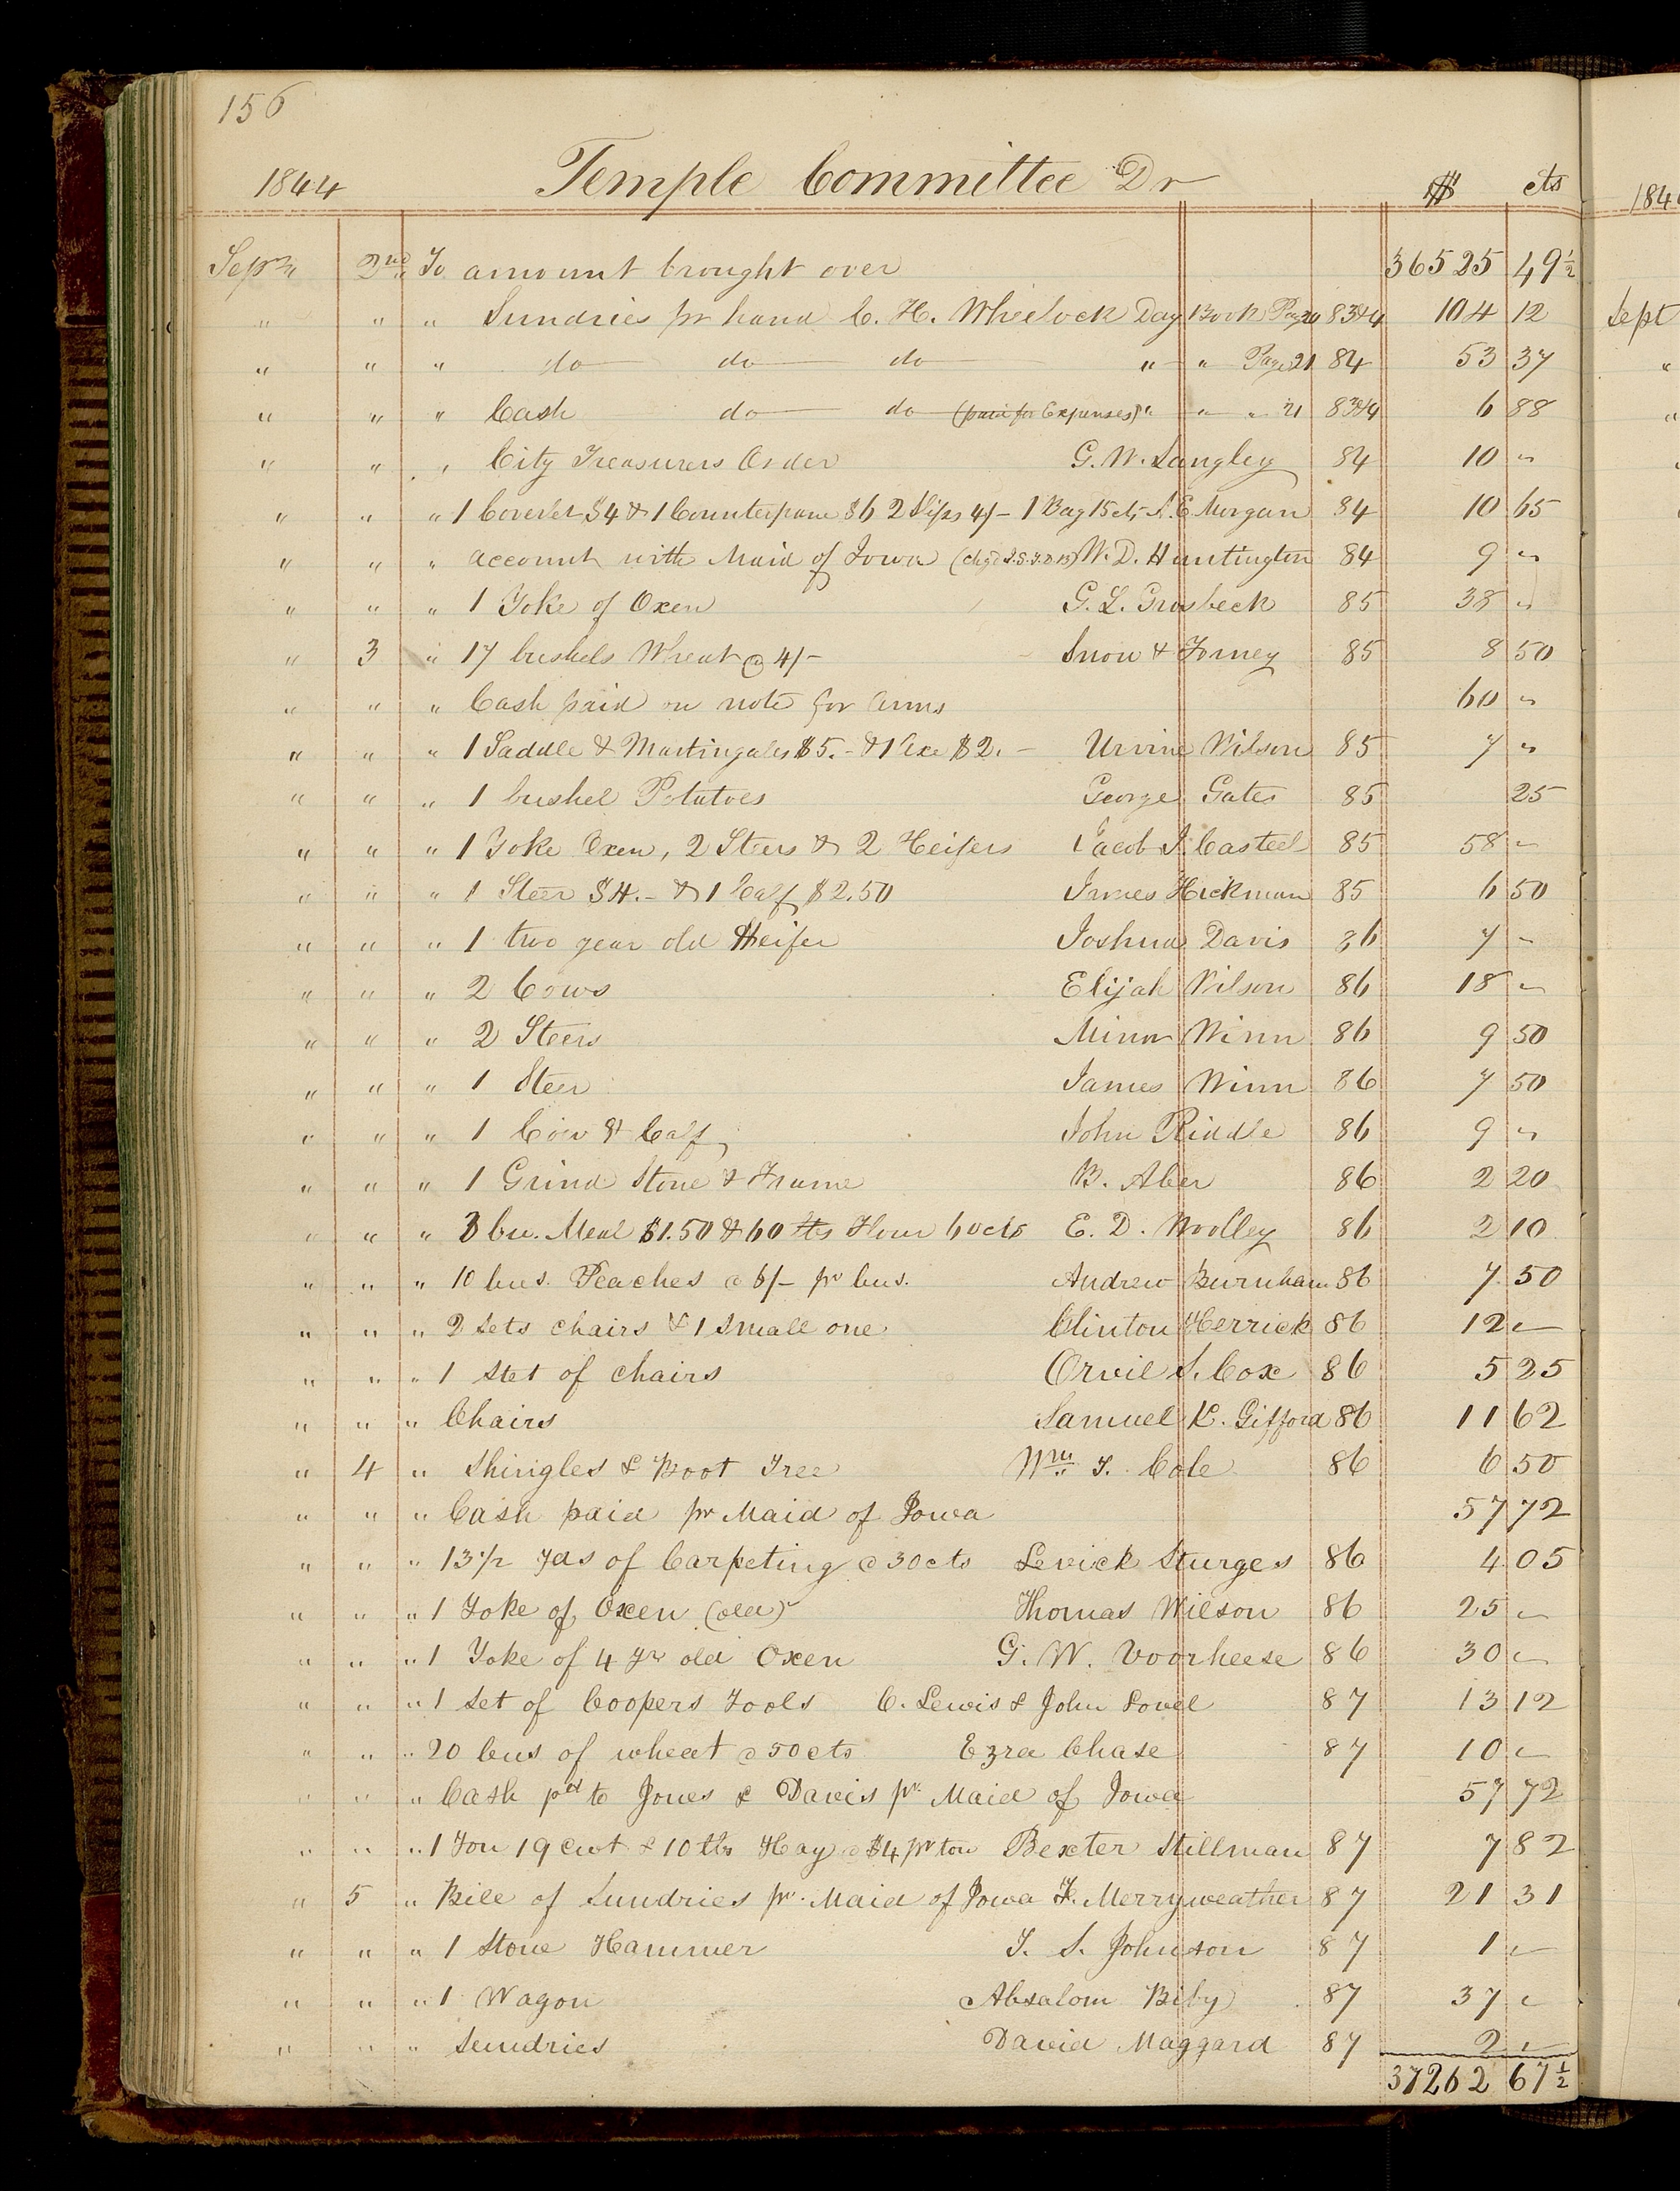 156
1844 Temple Committee Dr $ cts
Sepr 2nd To amount brought over 36525 49½
" " " Sundries pr hand C. H. Wheelock Day Book Page 20 83&4 104 12
" " " do do do " " Page 21 84 53 37
" " " Cash do do (paid for Expenses) " " " 21 83&4 6 88
" " " City Treasurers Order G. W. Langley 84 10 "
" " " 1 Coverlet $4 & 1 Counterpane $6 2 Slips 4/- 1 Bag 15cts A. E. Morgan 84 10 65
" " " account with Maid of Iowa W. D. Huntington 84 9 "
" " " 1 Yoke of Oxen G. L. Grosbeck 85 38 "
" 3 " 17 bushels Wheat @ 4/- Snow & Forney 85 8 50
" " " Cash paid on note for Arms 60 "
" " " 1 Saddle & Martingales $5.- & 1 Axe $2.- Urvine Wilson 85 7 "
" " " 1 bushel Potatoes George Gates 85 25
" " " 1 Yoke Oxen, 2 Steers & 2 Heifers Jacob I. Casteel 85 58 "
" " " 1 Steer $4.- & 1 Calf $2.50 James Hickman 85 6 50
" " " 1 two year old Heifer Joshua Davis 86 7 -
" " " 2 Cows Elijah Wilson 86 18 "
" " " 2 Steers Minor Winn 86 9 50
" " " 1 Steer James Winn 86 7 50
" " " 1 Cow & Calf John Riddle 86 9 "
" " " 1 Grind Stone & Frame B. Aber 86 2 20
" " " 3 bu. Meal $1.50 & 60 lbs Flour 60cts E. D. Woolley 86 2 10
" " " 10 bus. Peaches @ 6/- pr bus. Andrew Burnham 86 7 50
" " " 2 sets chairs & 1 small one Clinton Herrick 86 12 "
" " " 1 set of chairs Orvil S. Cox 86 5 25
" " " Chairs Samuel K. Gifford 86 11 62
" 4 " Shingles & Boot Tree Wm T. Cole 86 6 50
" " " Cash paid pr Maid of Iowa 57 72
" " " 13½ yds of Carpeting @ 30cts Levick Sturges 86 4 05
" " " 1 Yoke of Oxen (old) Thomas Wilson 86 25 "
" " " 1 Yoke of 4 yr old Oxen G. W. Voorheese 86 30 "
" " " 1 set of Coopers Tools C. Lewis & John Lovel 87 13 12
" " " 20 bus of wheat @ 50cts Ezra Chase 87 10 "
" " " Cash pd to Jones & Davis pr Maid of Iowa 57 72
" " " 1 Ton 19 cwt & 10 lbs Hay @ $4 pr ton Dexter Stillman 87 7 82
" 5 " Bill of sundries pr Maid of Iowa F. Merryweather 87 21 31
" " " 1 Stone Hammer T. S. Johnson 87 1 "
" " " 1 Wagon Absalom Biby 87 37 "
" " " Sundries David Maggard 87 2 "
37262 67½
184
Sept